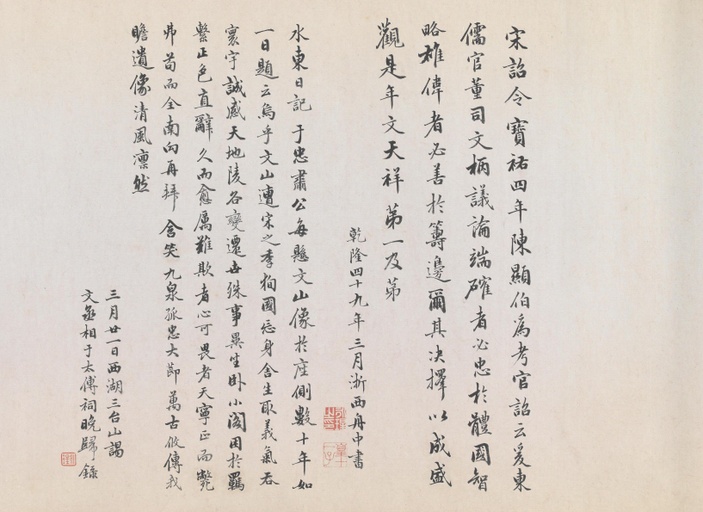 宋詔令寶祐四年陳顯伯為考官詔云爰東
儒官董司文柄議論端確者必忠於體國智
略雄偉者必善於籌邊爾其決擇以成盛
觀是年文天祥第一及第
乾隆四十九年三月浙西舟中書
水東日記于忠肅公每懸文山像於座側數十年如
一日題云烏乎文山遭宋之季狥國忘身舍生取義氣吞
寰宇誠感天地陵谷變遷世殊事異坐卧小閣困於羈
繫正色直辭久而愈厲難欺者心可畏者天寧正而斃
弗苟而全南向再拜含笑九泉孤忠大節萬古攸傳我
瞻遺像清風凛然
三月廿一日西湖三台山謁
文丞相于太傅祠晚歸錄